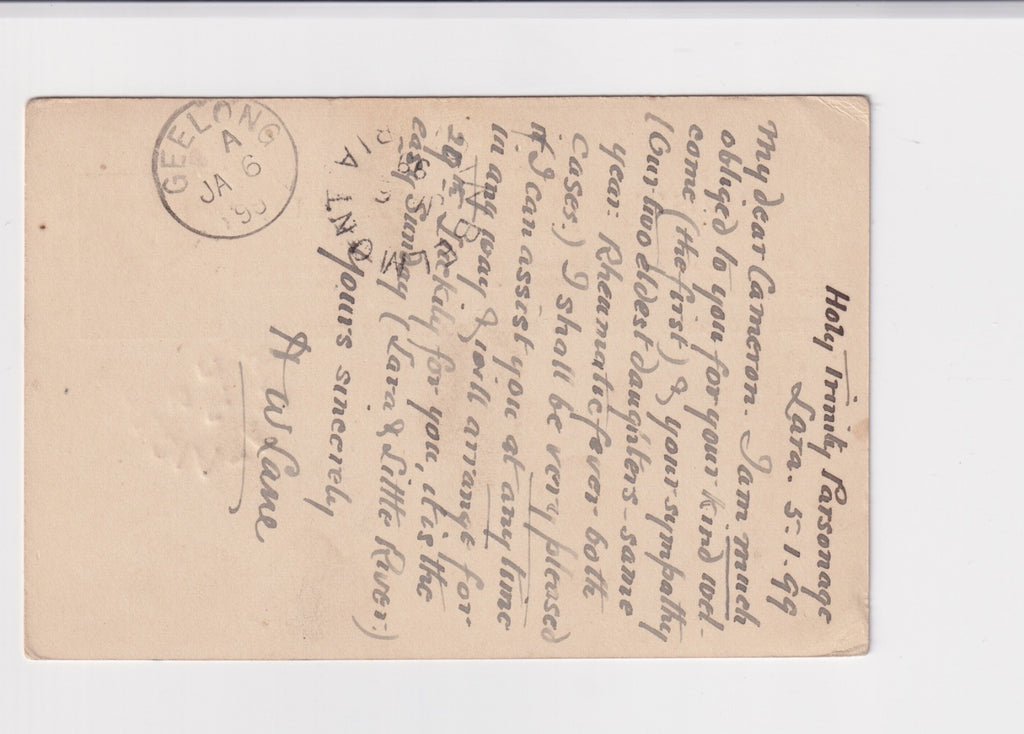 Holy Trinity Parsonage
Lara. 5.1.99
My dear Cameron. I am much
obliged to you for your kind wel-
come (the first) & your sympathy
(Our two eldest daughters - same
year: Rheumatic fever both
cases.) I shall be very pleased
if I can assist you at any time
in any way, & will arrange for
29th. Luckily for you, it is the
easy Sunday (Lara & Little River.)
Yours sincerely
A W Lane
GEELONG
A
JA 6
99